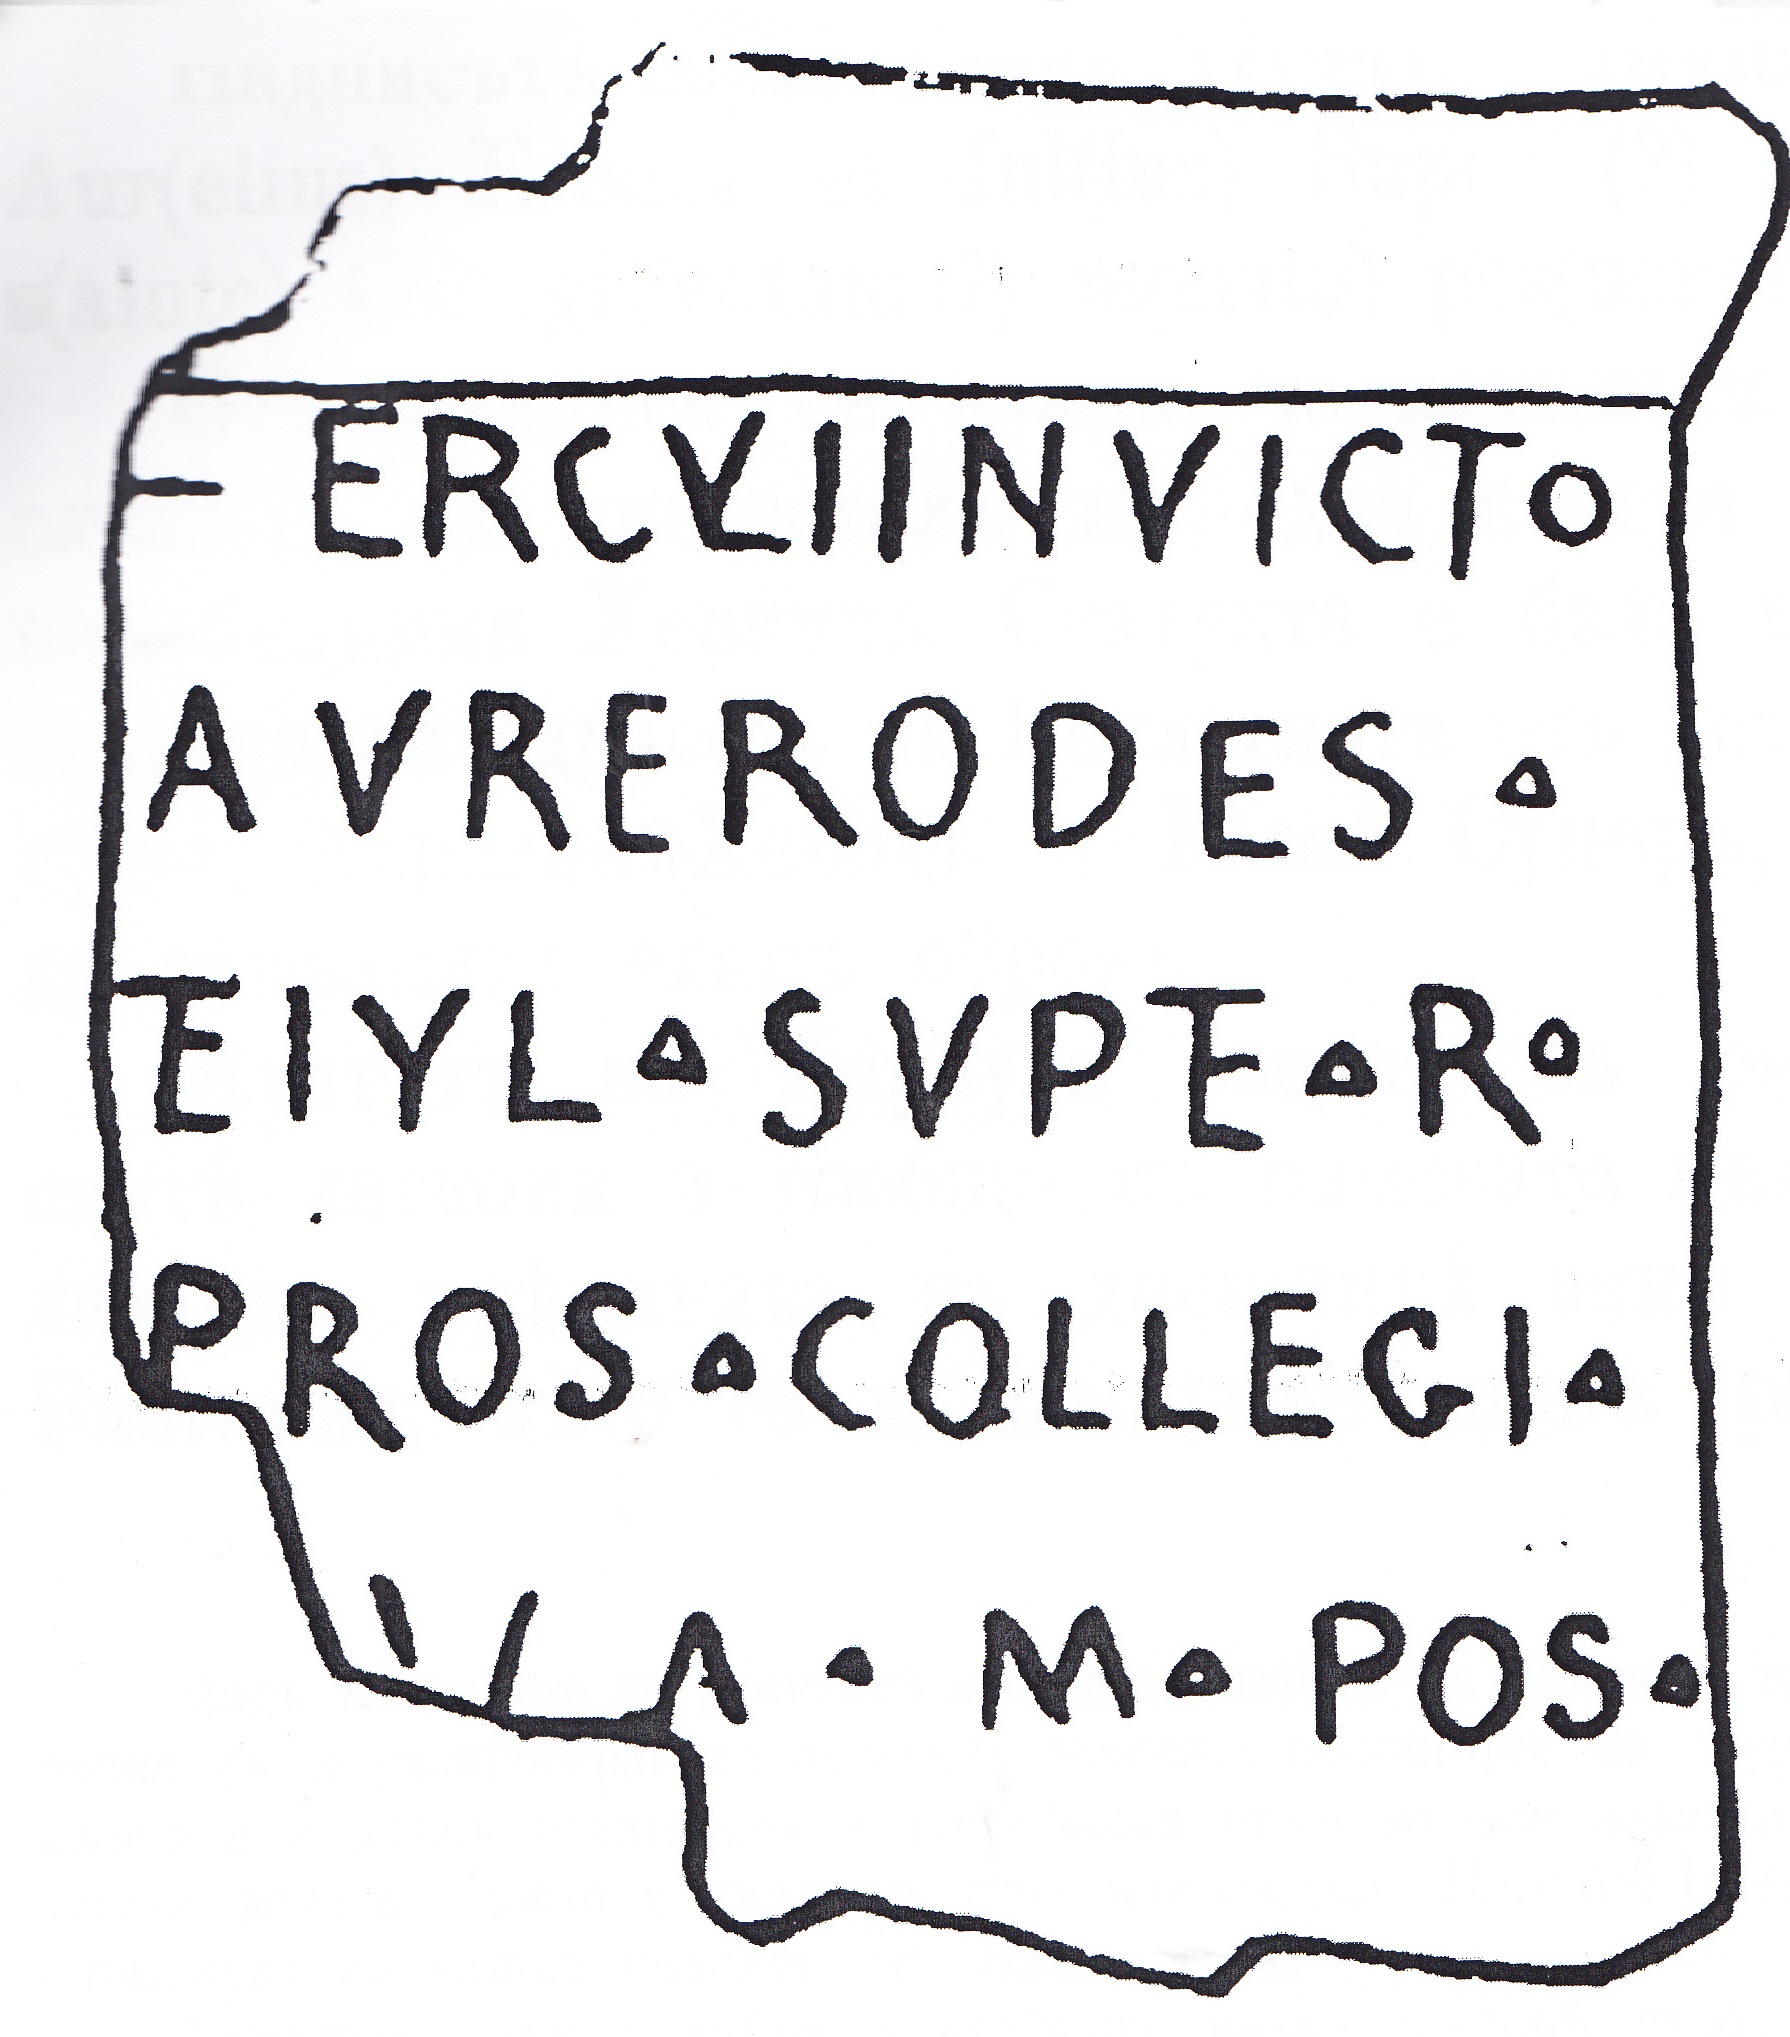 ERCVLIINVICTO
AVRERODES
EIVL SVPER
PROS COLLEGI
M POS